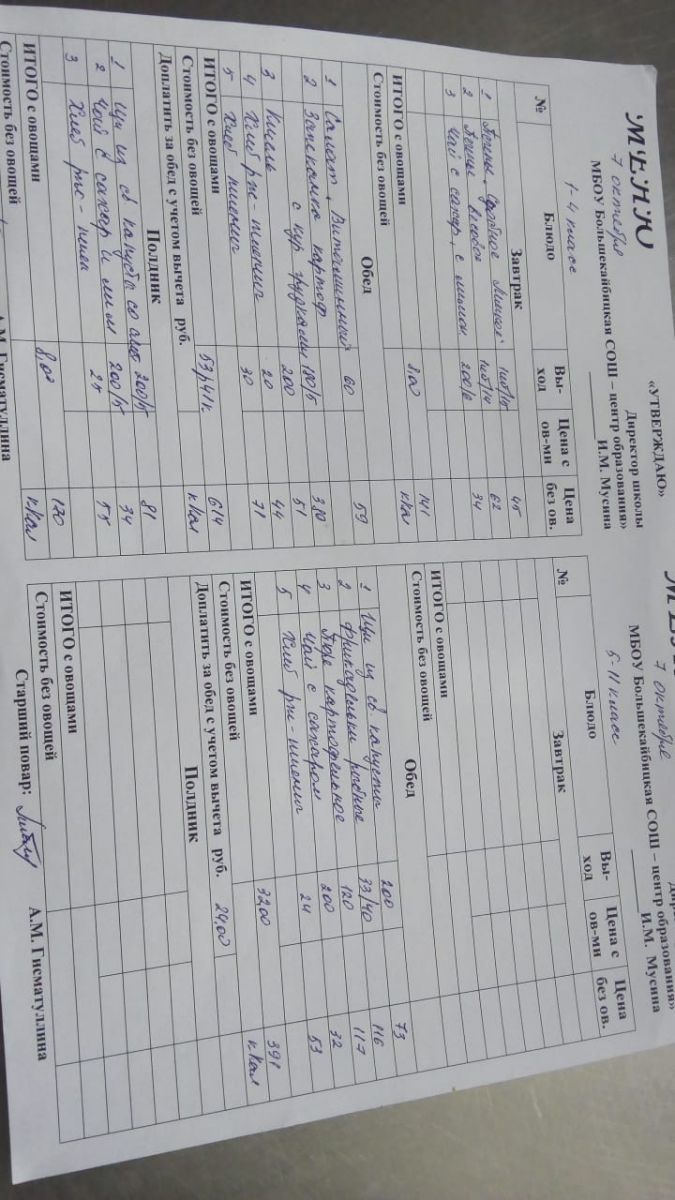 МЕНЮ
7 октября
«УТВЕРЖДАЮ»
Директор школы
МБОУ Большекайбицкая СОШ – центр образования»
И.М. Мусина
1-4 класс
№ Блюдо Вы-ход Цена с ов-ми Цена без ов.
Завтрак
1 45
2 62
3 Чай с сахар, с 34
ИТОГО с овощами 8,00 141
Стоимость без овощей ккал
Обед
1 Салат „Витаминный" 60 59
2 Запеканка картоф 200 380
с кур грудками 51
3 Кисель 200 44
4 Хлеб рж-пшенич 20 71
5 Хлеб пшенич 30
ИТОГО с овощами 614
Стоимость без овощей ккал
Доплатить за обед с учетом вычета руб.
Полдник
1 Щи из св капусты со 81
2 Чай с сахар и 34
3 Хлеб рж-пшен 25 55
ИТОГО с овощами 8,00 170
Стоимость без овощей ккал
А.М. Гисматуллина
7 октября
МБОУ Большекайбицкая СОШ – центр образования»
И.М. Мусина
5-11 класс
№ Блюдо Вы-ход Цена с ов-ми Цена без ов.
Завтрак
ИТОГО с овощами
Стоимость без овощей
Обед
1 Щи из св. капусты 200 73
2 Фрикадельки рыбные 116
3 Пюре картофельное 120 117
4 Чай с сахаром 200 32
5 Хлеб рж-пшенич 24 53
ИТОГО с овощами 32,00 391
Стоимость без овощей ккал
Доплатить за обед с учетом вычета руб. 24,00
Полдник
ИТОГО с овощами
Стоимость без овощей
Старший повар: А.М. Гисматуллина